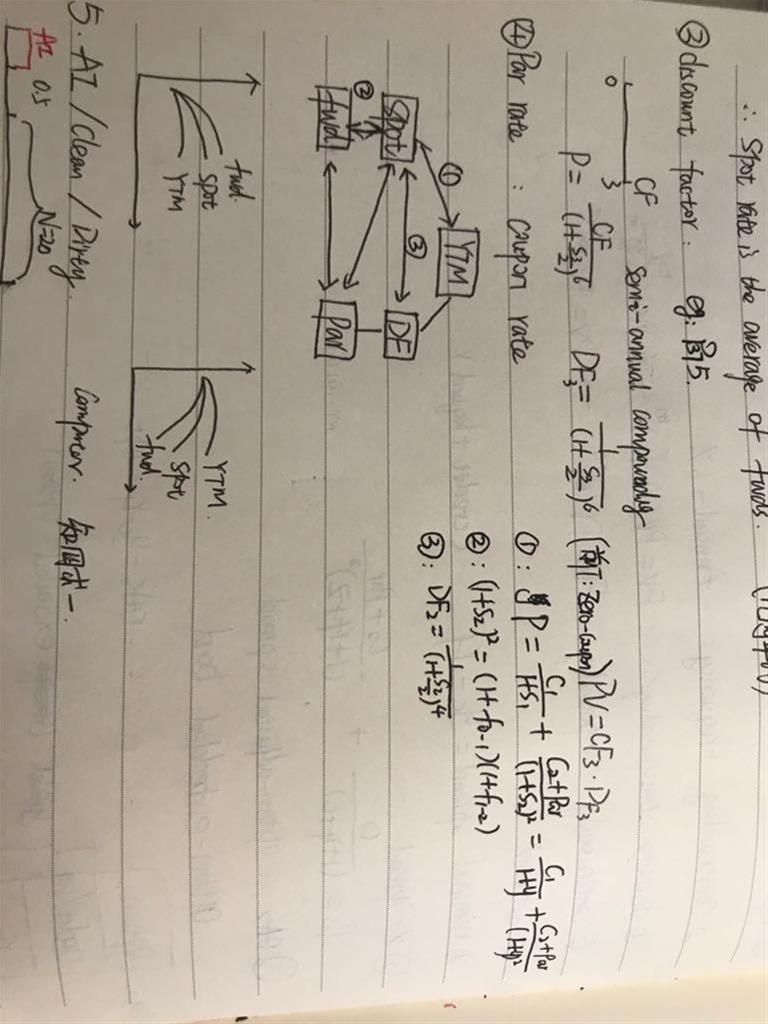 ∴ Spot rate is the average of fwds.
③ discount factor: eg:
0 3 CF semi-annual compounding
P = CF/(1+S₂/2)⁶ DF₃ = 1/(1+S₂/2)⁶ (Zero-coupon) PV = CF₃ · DF₃
④ Par rate : coupon rate
①: P = C₁/(1+S₁) + (C₂+Par)/(1+S₂)² = C₁/(1+y) + (C₂+Par)/(1+y)²
②: (1+S₂)² = (1+f₀₋₁)(1+f₁₋₂)
③: DF₂ = 1/(1+S₂/2)⁴
① YTM
Spot ③ DF
②
fwd Par
fwd.
Spot
YTM
YTM.
Spot
fwd.
5. AI / Clean / Dirty. Comparison. 知四求一.
AI 0.5 N=20